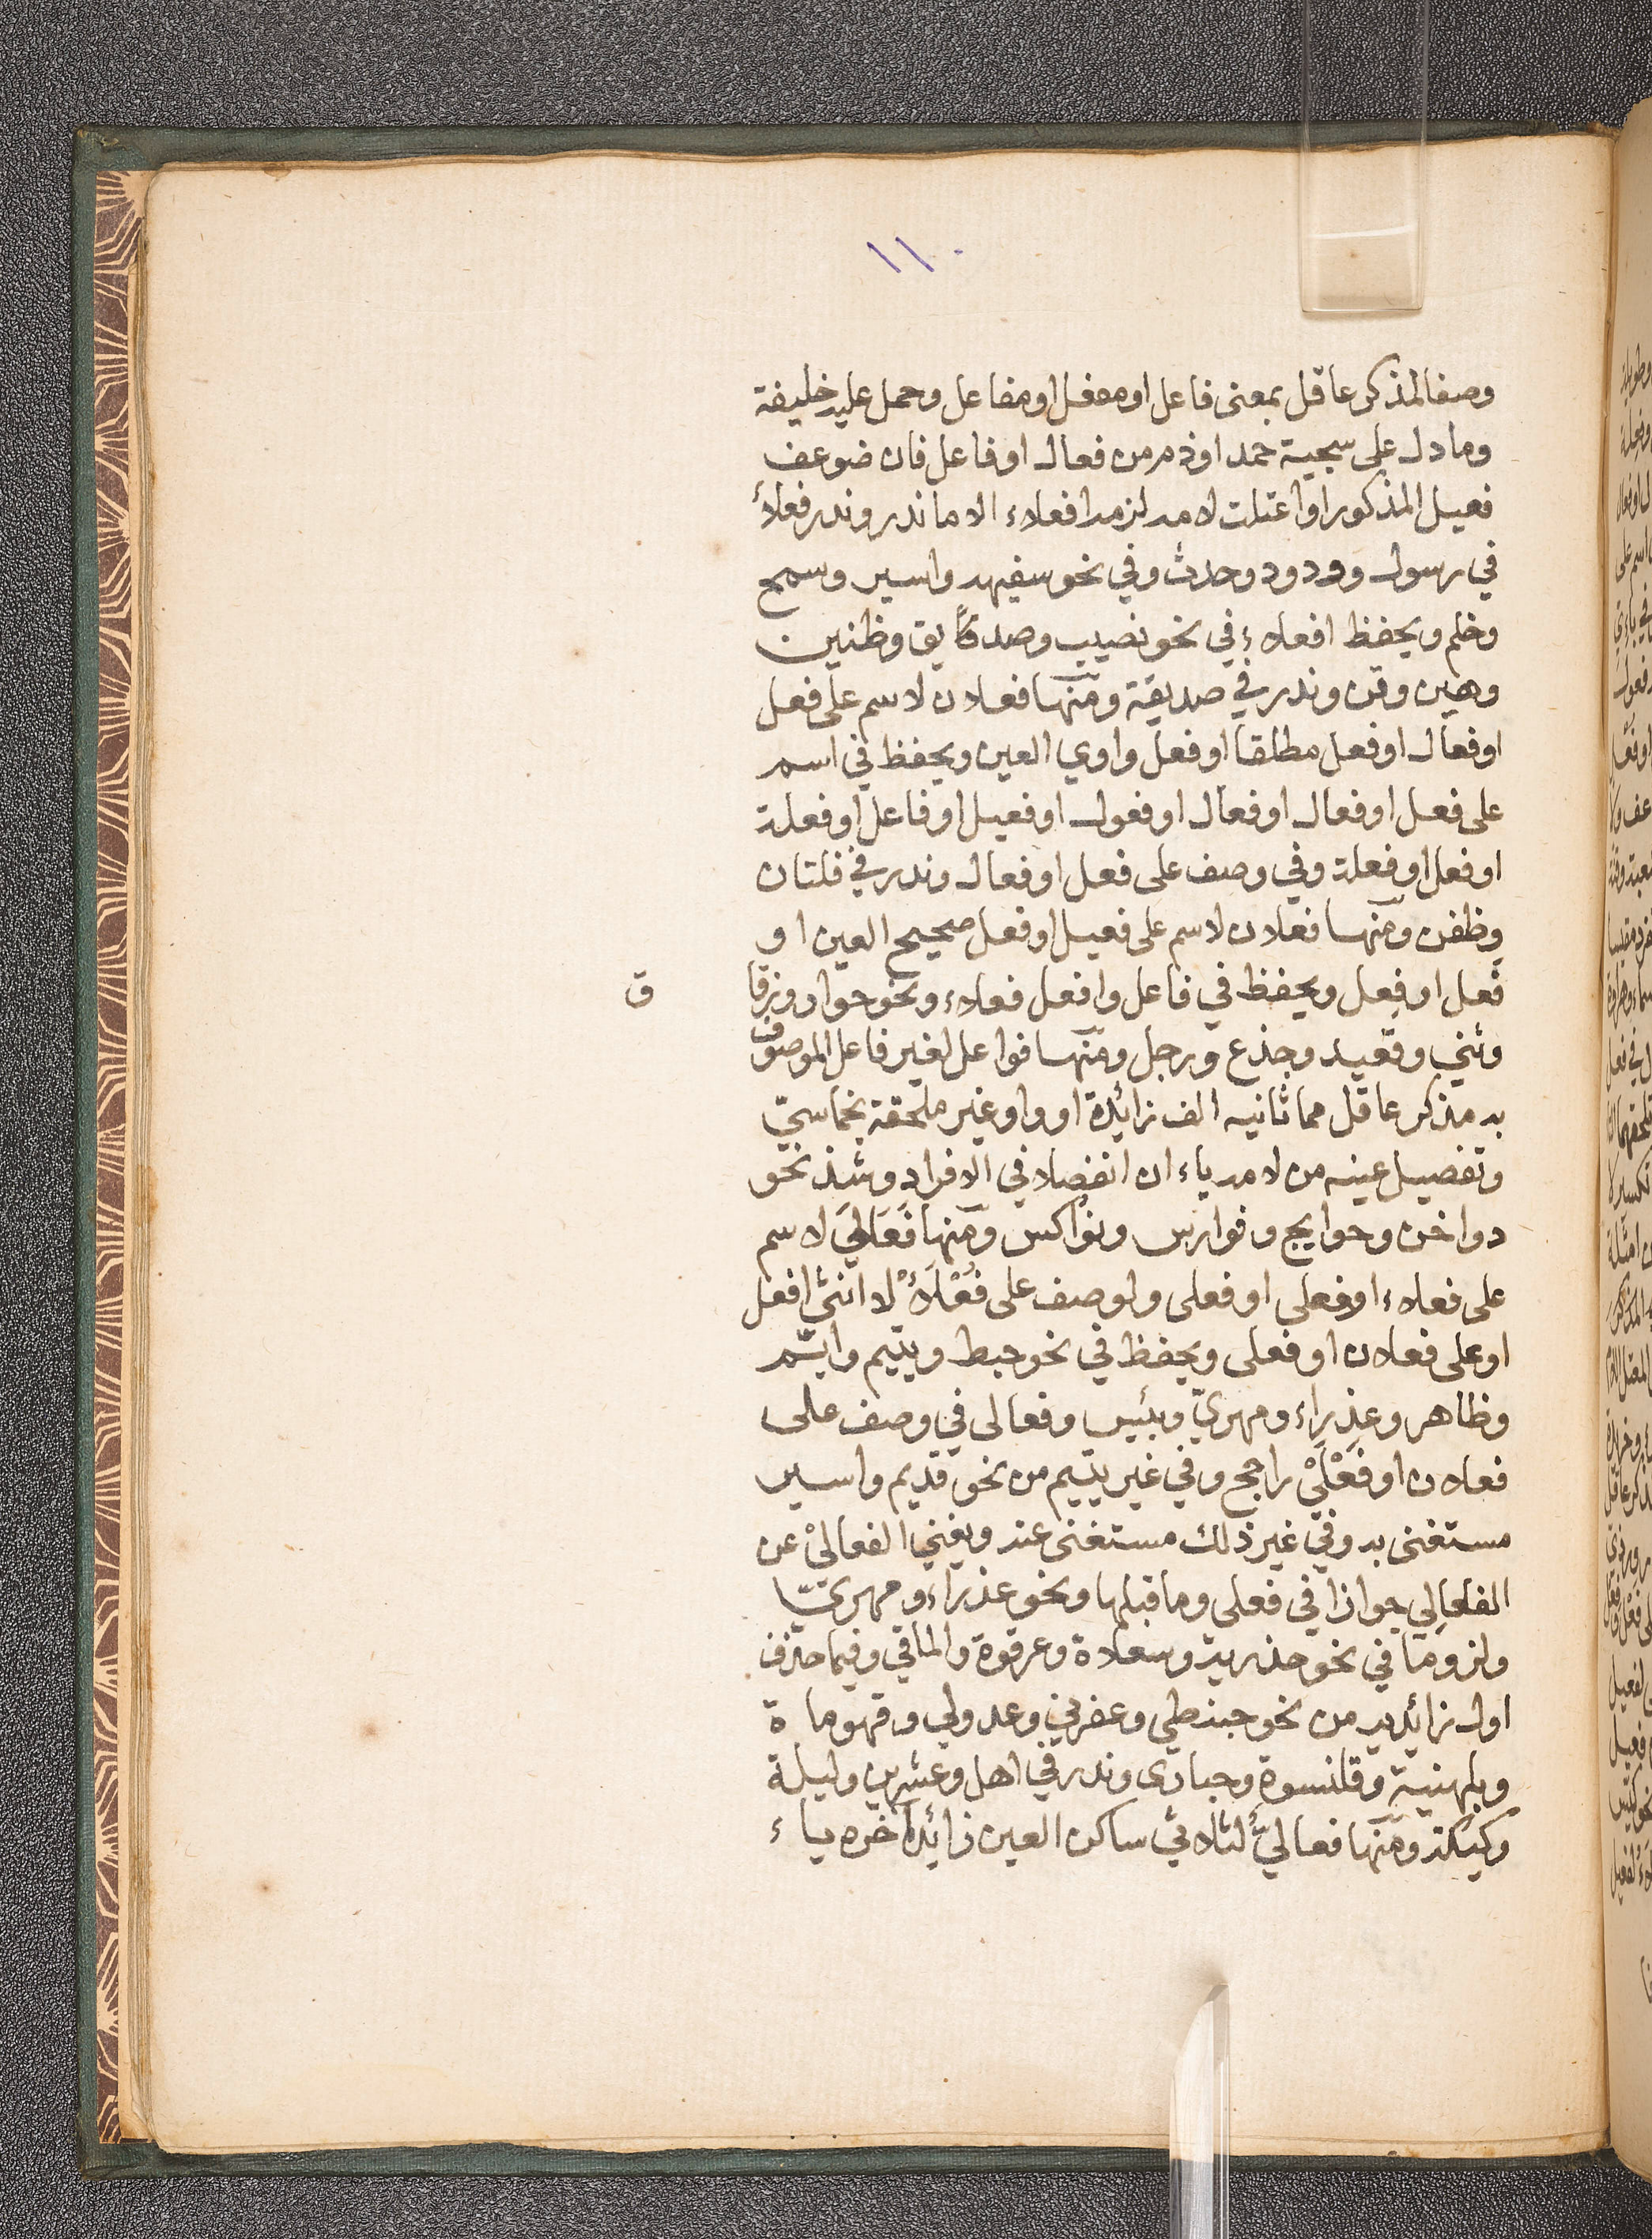 ١١٠
وصفا لمذكر عاقل بمعنى فاعل او مفعل او مفاعل وحمل عليه خليفة
وما دل على سجية حمد او ذم من فعال او فاعل فان ضوعف
فعيل المذكور او اعتلت لامه لزمه افعلاء الا ما ندر وندر فعلاء
في رسول وودود وحدث وفي نحو سفيه واسير وسمح
وخلم ويحفظ افعلاء في نحو نصيب وصديق وظنين
وهين وقن وندر في صديقة ومنها فعلان لاسم على فعل
او فعال او فعل مطلقا او فعل واوي العين ويحفظ في اسم
على فعل او فعال او فعال او فعول او فعيل او فاعل او فعلة
او فعل او فعلة وفي وصف على فعل او فعال وندر في فلتان
وظفن ومنها فعلان لاسم على فعيل او فعل صحيح العين او
فعل او فعل ويحفظ في فاعل وافعل فعلاء ونحو حوار وزقا
ق
وثني وقعيد وجذع ورجل ومنها فواعل لغير فاعل الموصوف
به مذكر عاقل مما ثانيه الف زائدة او واو غير ملحقة بخماسيّ
وتفصيل عينه من لامه ياء ان انفصلا في الافراد وشذ نحو
دواخن وحوايج وفوارس ونواكس ومنها فَعَالِيَ لاسم
على فعلاء او فعلى او فعلى ولوصف على فُعْلَىْ لا انثى افعل
او على فعلان او فعلى ويحفظ في نحو حبط ويتيم وايّم
وظاهر وعذراء ومهريّ وبئيس وفعالى في وصف على
فعلان او فَعْلَىْ راجح وفي غير يتيم من نحو قديم واسير
مستغنى به وفي غير ذلك مستغنى عنه ويغني الفعالى عن
الفعالِي جوازا في فعلى وما قبلها ونحو عذراء ومهريّ
ولزوما في نحو حذرية وسعلاة وعرقوة والماقي وفيما حذف
اول زائديه من نحو حبنطى وعفرنى وعدولى وقهوباة
وبلهنية وقلنسوة وحبارى وندر في اهل وعشرين وليلة
وكيكة ومنها فعاليّ لثلاثي ساكن العين زائدا آخره ياء